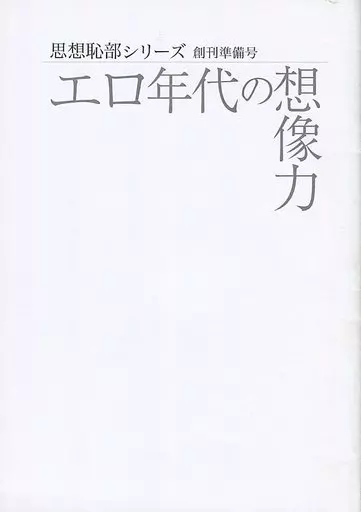 思想恥部シリーズ 創刊準備号
エロ年代の想像力